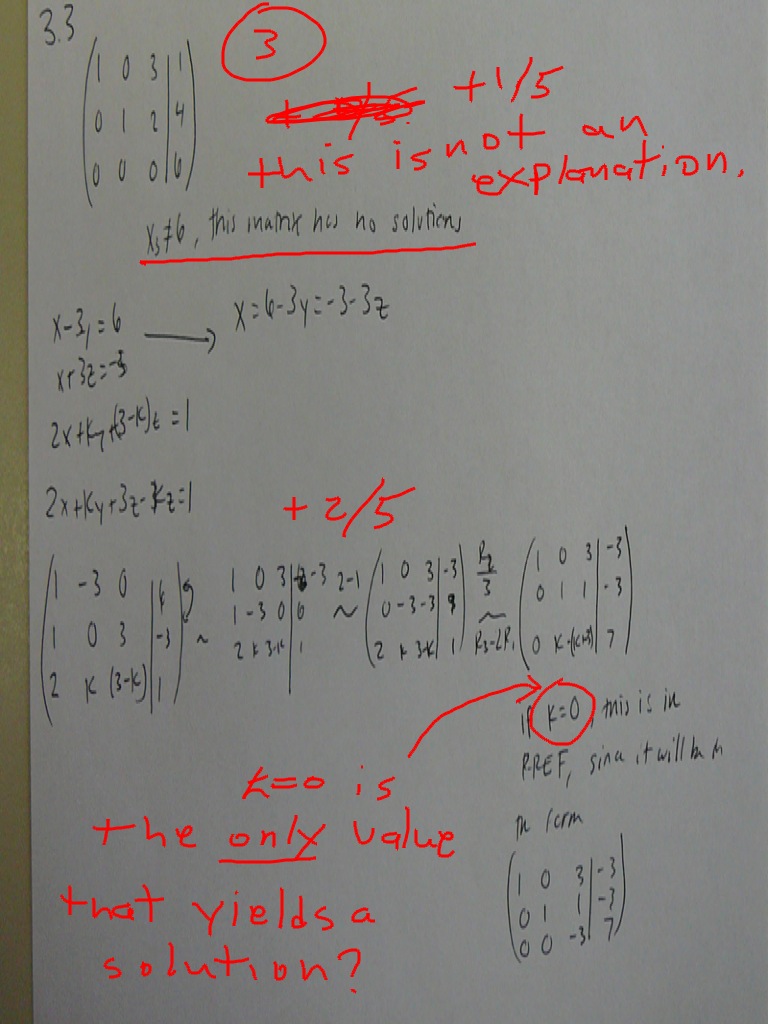 3.3
3
1 0 3 | 1
0 1 2 | 4
0 0 0 | 6
+1/5
this is not an
explanation.
x₃≠6, this matrix has no solutions
x-3y=6 → x=6-3y=-3-3z
x+3z=-3
2x+ky+(3-k)z=1
2x+ky+3z-kz=1
+2/5
1 -3 0 | 6
1 0 3 | -3
2 k (3-k) | 1
~
1 0 3 | -3
1 -3 0 | 6
2 k 3-k | 1
2-1
~
1 0 3 | -3
0 -3 -3 | 9
2 k 3-k | 1
R₂/3
~
R₃-2R₁
1 0 3 | -3
0 1 1 | -3
0 k -(k+3) | 7
If k=0, this is in
RREF, since it will be in
the form
1 0 3 | -3
0 1 1 | -3
0 0 -3 | 7
k=0 is
the only value
that yields a
solution?